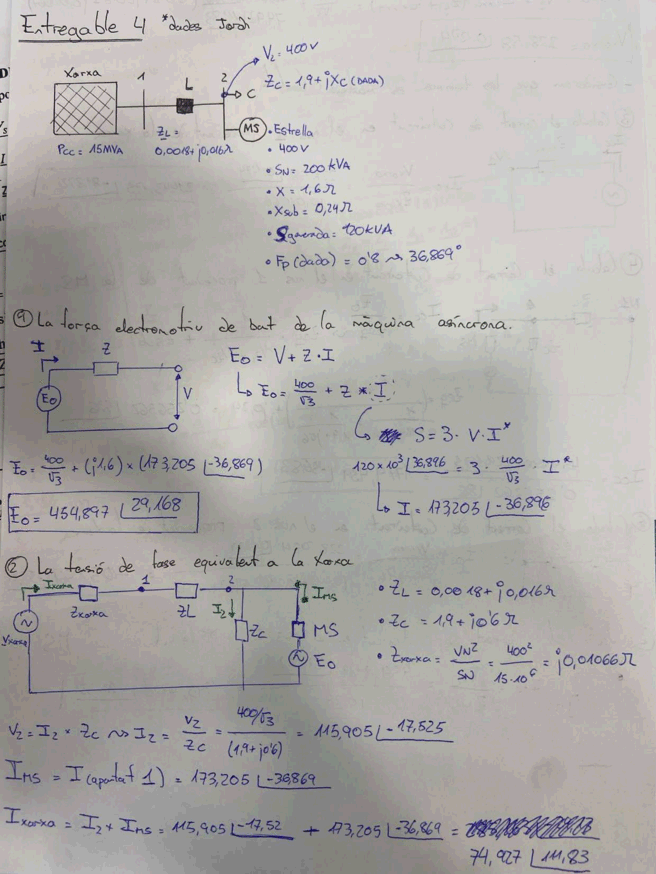 Entregable 4 *dades Jordi
Xarxa
1
L
2
C
MS
Pcc = 15MVA
ZL =
0,0018+j0,016Ω
V2 = 400V
Zc = 1,9+jXc (DADA)
• Estrella
• 400V
• SN = 200 kVA
• X = 1,6Ω
• Xsub = 0,24Ω
• Sgenerada = 120KVA
• Fp (dado) = 0'8 ⇝ 36,869°
① La força electromotriu de buit de la màquina asíncrona.
I
Z
E0
V
E0 = V + Z · I
↳ E0 = 400/√3 + Z * I
S = 3 · V · I*
120×10³ ∠36,896 = 3 · 400/√3 · I*
↳ I = 173205 ∠-36,896
E0 = 400/√3 + (j1,6) × (173,205 ∠-36,869)
E0 = 454,897 ∠29,168
② La tensió de fase equivalent a la Xarxa
Ixarxa
Zxarxa
1
ZL
2
I2
Zc
IMS
MS
E0
Vxarxa
• ZL = 0,0018+j0,016Ω
• Zc = 1,9+j0'6Ω
• Zxarxa = VN²/SN = 400²/15·10⁶ = j0,01066Ω
V2 = I2 × Zc ⇝ I2 = V2/Zc = 400/√3/(1,9+j0'6) = 115,905 ∠-17,525
IMS = I(apartat 1) = 173,205 ∠-36,869
Ixarxa = I2 + IMS = 115,905 ∠-17,52 + 173,205 ∠-36,869 =
74,927 ∠111,83